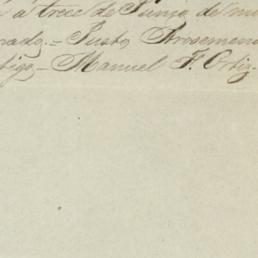 á trece de Junio de mi
rado.= Justo Arosemena
tigo – Manuel F. Ortiz.